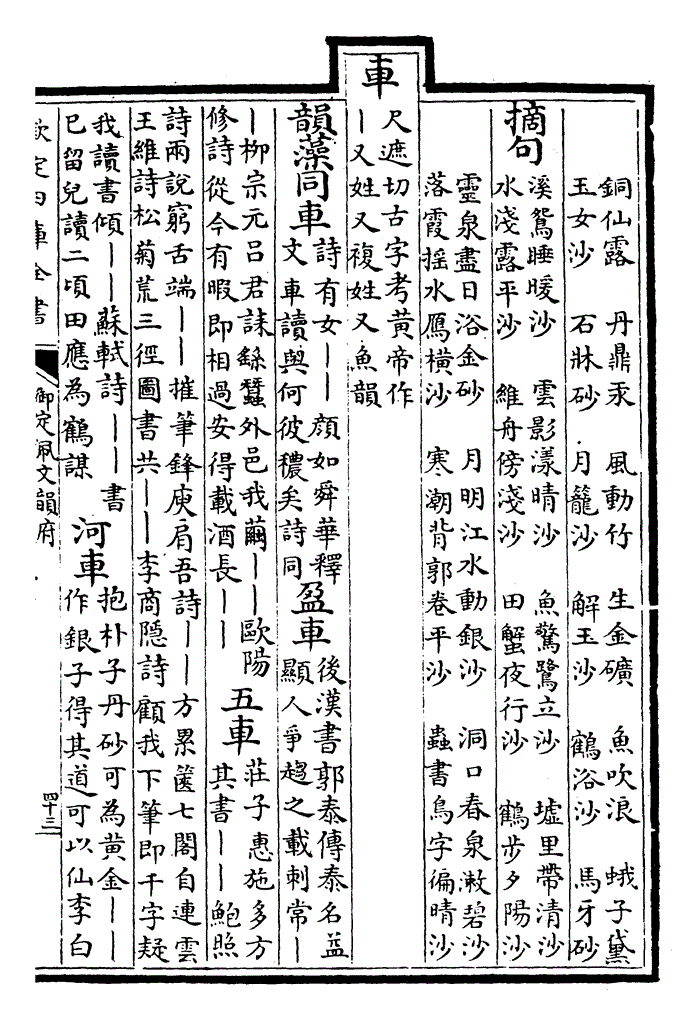 銅仙露　丹鼎汞　風動竹　生金礦　魚吹浪　蛾子黛
玉女沙　石牀砂　月籠沙　解玉沙　鶴浴沙　馬牙砂
摘句
溪鴛睡暖沙　雲影漾晴沙　魚驚鷺立沙　墟里帶清沙
水淺露平沙　維舟傍淺沙　田蟹夜行沙　鶴步夕陽沙
靈泉盡日浴金砂　月明江水動銀沙　洞口春泉漱碧沙
落霞揺水鴈横沙　寒潮背郭卷平沙　蟲書鳥字徧晴沙
車
尺遮切古字考黄帝作
丨又姓又複姓又魚韻
韻藻同車
詩有女丨丨顔如舜華釋
文車讀與何彼穠矣詩同
盈車
後漢書郭泰傳泰名益
顯人爭趨之載刺常丨
丨柳宗元吕君誄繇蠶外邑我繭丨丨歐陽
修詩從今有暇即相過安得載酒長丨丨
五車
莊子惠施多方
其書丨丨鮑照
詩兩說窮舌端丨丨摧筆鋒庾肩吾詩丨丨方累篋七閣自連雲
王維詩松菊荒三徑圖書共丨丨李商隱詩顧我下筆即千字疑
我讀書傾丨丨蘇軾詩丨丨書
已留兒讀二頃田應為鶴謀
河車
抱朴子丹砂可為黄金丨丨
作銀子得其道可以仙李白
欽定四庫全書
御定佩文韻府
四十三